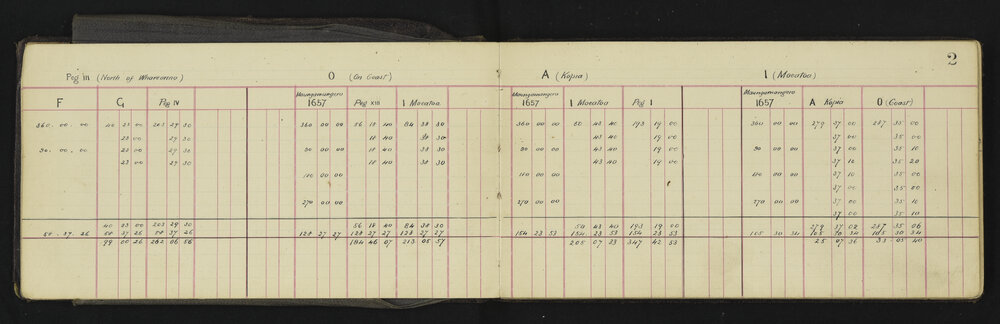 2
Peg III (North of Whareorino) O (On Coast) A (Kopia) I (Moeatoa)
F G Peg IV Maungamangero 1657 Peg XIII I Moeatoa Maungamangero 1657 I Moeatoa Peg I Maungamangero 1657 A Kopia O (Coast)
360 . 00 . 00 40 23 00 203 29 30 360 00 00 56 18 40 84 38 30 360 00 00 50 43 40 193 19 00 360 00 00 279 37 00 287 35 00
23 00 29 30 18 40 38 30 43 40 19 00 37 00 35 00
90 . 00 . 00 23 00 29 30 90 00 00 18 40 38 30 90 00 00 43 40 19 00 90 00 00 37 00 35 10
23 00 29 30 18 40 38 30 43 40 19 00 37 10 35 20
180 00 00 180 00 00 180 00 00 37 10 35 10
37 00 35 00
270 00 00 270 00 00 270 00 00 37 10 35 10
37 00 35 10
40 23 00 203 29 30 56 18 40 84 38 30 50 43 40 193 19 00 279 37 02 287 35 06
58 . 37 . 26 58 37 26 58 37 26 128 27 27 128 27 27 128 27 27 154 23 53 154 23 53 154 23 53 105 30 34 105 30 34 105 30 34
99 00 26 262 06 56 184 46 07 213 05 57 205 07 33 347 42 53 25 07 36 33 05 40